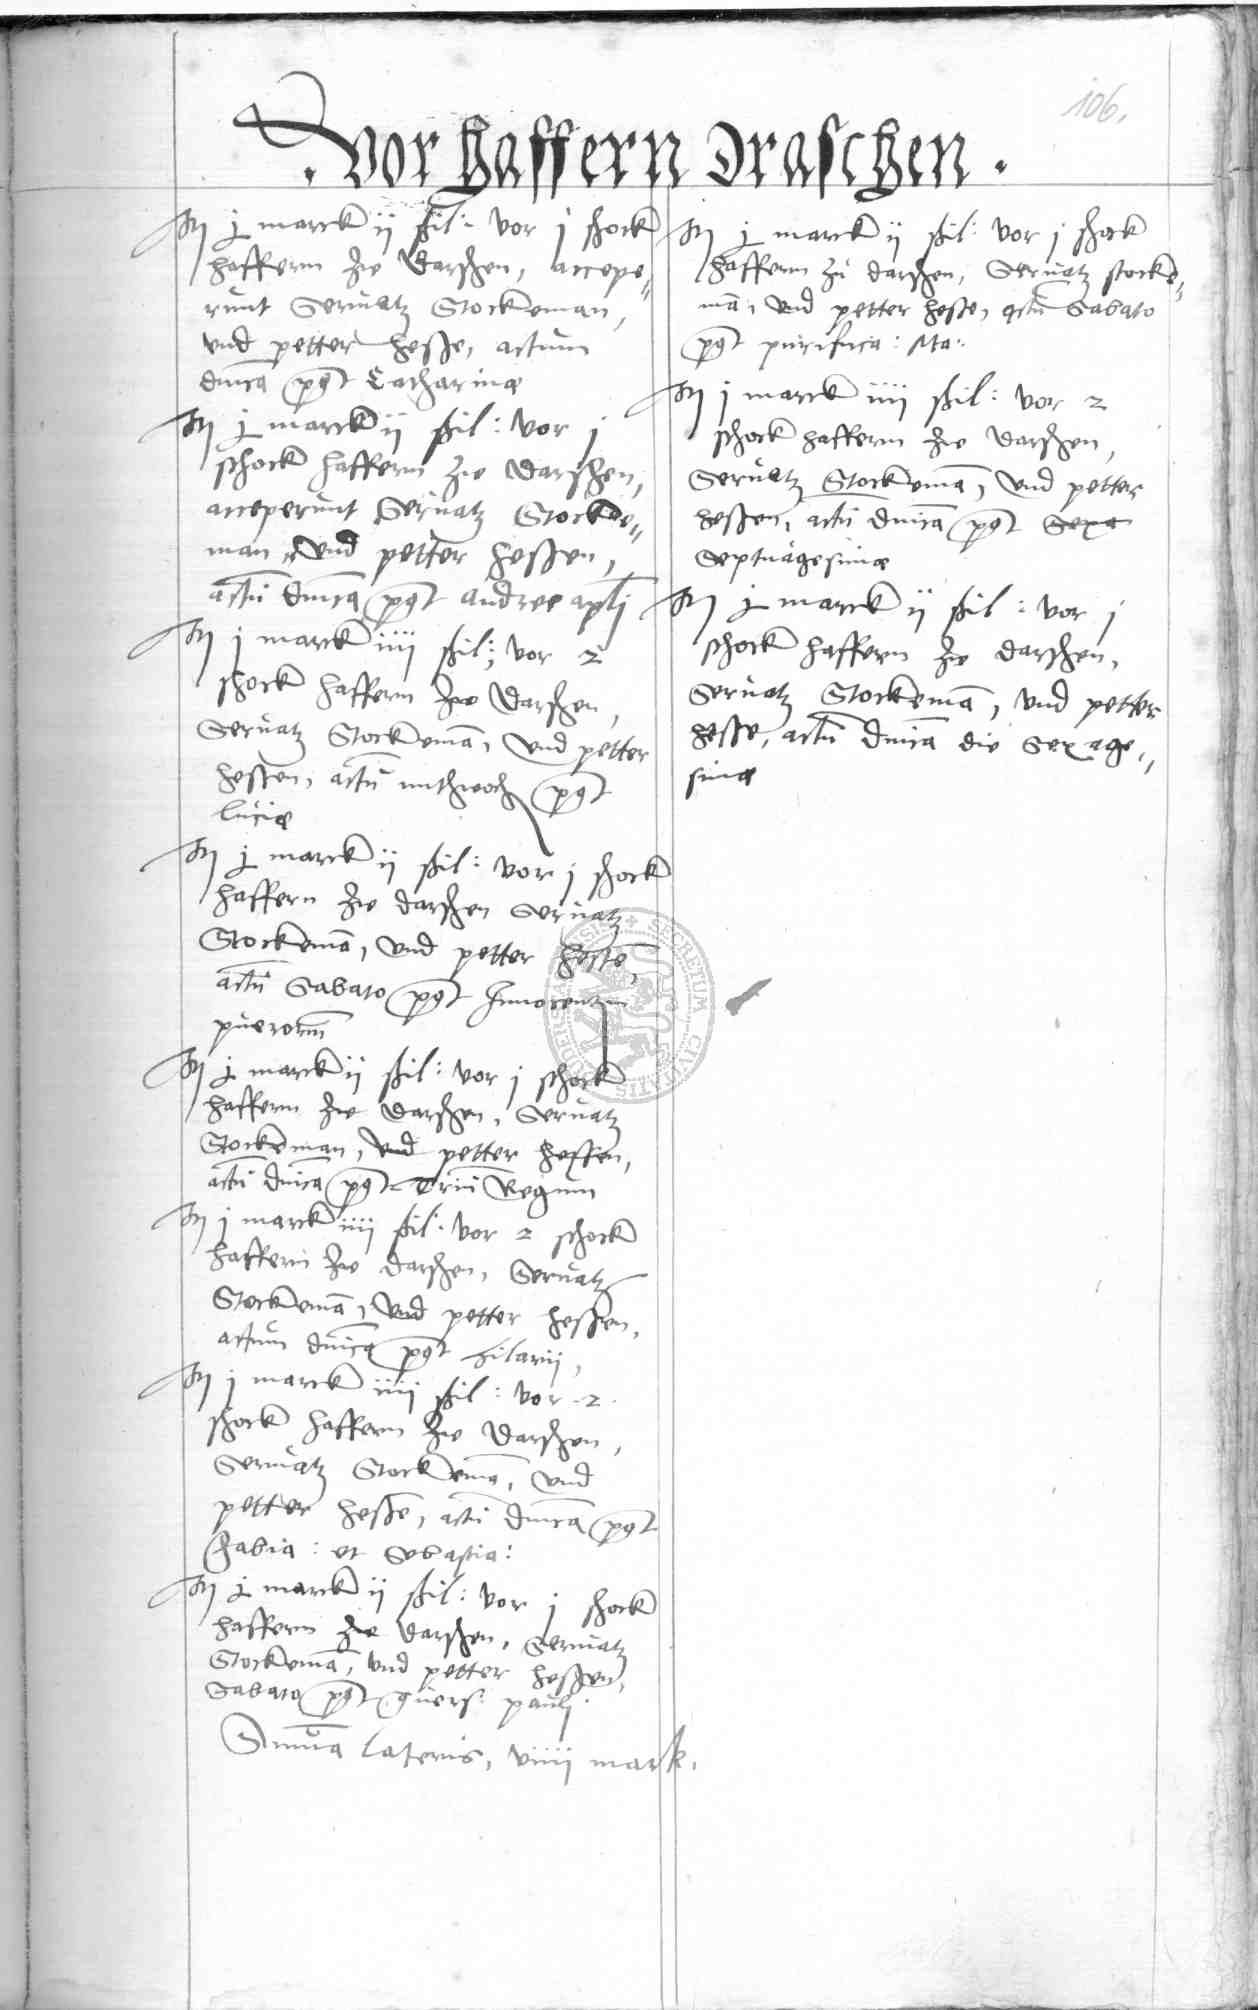 106.
. Vor haffern draschen .
Itm j marck ij ßil: vor j schock
haffernn zw darschen, accepe„
runt Servatz Stockeman,
vnd petter hesse, actum
dnica post Catharinae
Itm j marck ij ßil: vor j
schock haffernn zw darschen,
acceperunt Servatz Stocke„
man, vnd petter hessen,
actu dnica post Andree aplj
Itm j marck iiij ßil: vor 2
schock haffernn zw darschen,
Servatz Stockemā, vnd petter
hessen, actu mithwoch post
luciae
Itm j marck ij ßil: vor j schock
haffern zw darschen Servatz
Stockemā, vnd petter hessē,
actu Sabato post Innocentum
puerorum
Itm j marck ij ßil: vor j schock
haffernn zw darschen, Servatz
Stockeman, vnd petter hessen,
actu dnica post Triū Regum
Itm j marck iiij ßil: vor 2 schock
haffernn zw darschen, Servatz
Stockemā, vnd petter hessen,
actum dnica post hilarij,
Itm j marck iiij ßil: vor .2.
schock haffernn zw darschen,
Servatz Stockemā, vnd
petter hesse, actu dnica post
fabia: et Sebastia:
Itm j marck ij ßil: vor j schock
haffernn zw darschen, Servatz
Stockemā, vnd petter hessen,
Sabato post quers: paulj
Suma lateris, viiij mark,
Itm j marck ij ßil: vor j schock
haffernn zu darschen, Servatz stocke„
mā, vnd petter hesse, actu Sabato
post purifica: Ma:
Itm j marck iiij ßil: vor 2
schock haffernn zw darschen,
Servatz Stockemā, vnd petter
hessen, actu dnica post Sexa
Septuagesimae
Itm j marck ij ßil: vor j
schock haffern zw darschen,
Servatz Stockemā, vnd petter
hesse, actu dnica die Sexage„
simae
SECRETUM CIVITATIS